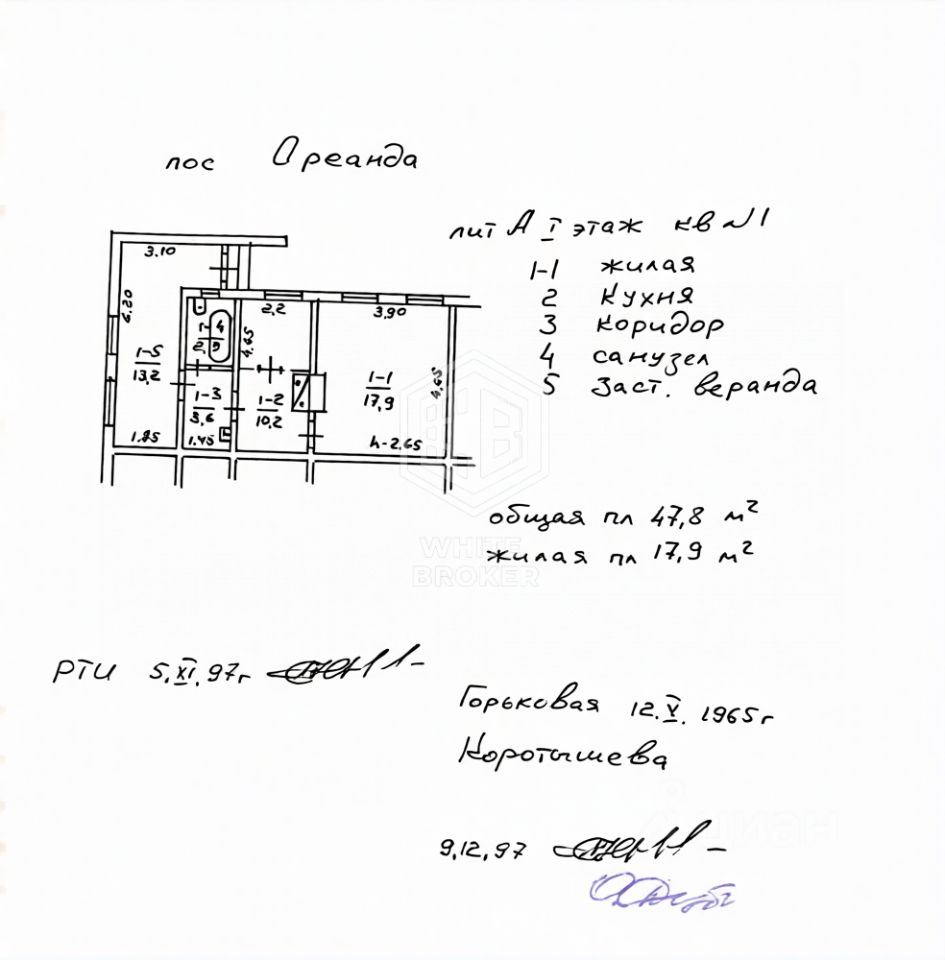 пос Ореанда
лит А I этаж кв №1
1-1 жилая
2 Кухня
3 коридор
4 санузел
5 Заст. веранда
3.10
6.20
1-5
13,2
1.85
4
1-3
3,6
1.45
2,2
4.65
1-2
10,2
3,90
1-1
17,9
4.65
h-2.65
общая пл 47,8 м²
жилая пл 17,9 м²
WHITE
BROKER
РТИ 5.XI.97г
Горьковая 12.V.1965г
Коротышева
циан
9,12,97